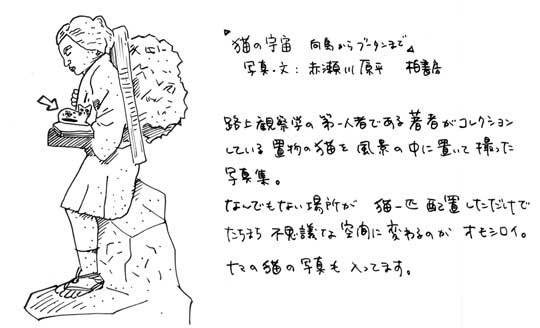 猫の宇宙 向島からブータンまで
写真・文：赤瀬川原平 柏書房
路上観察学の第一人者である著者がコレクション
している置物の猫を風景の中に置いて撮った
写真集。
なんでもない場所が 猫一匹配置しただけで
たちまち不思議な空間に変わるのがオモシロイ。
ナマの猫の写真も入ってます。